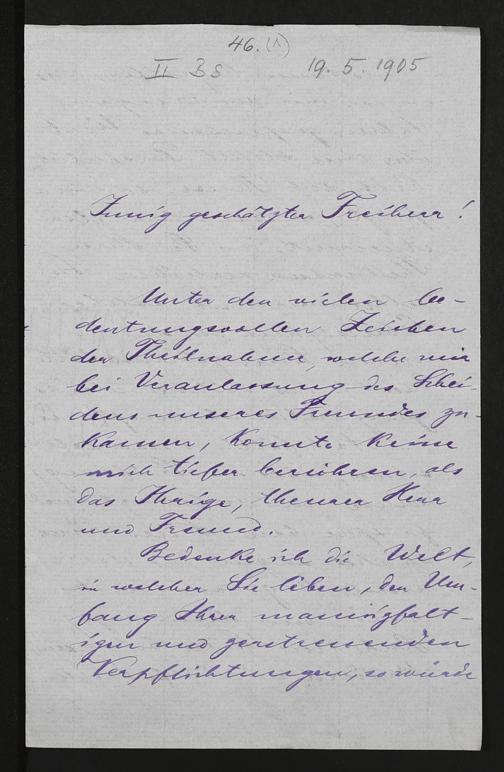 46. (1)
II BS 19. 5. 1905
Innig geschätzter Freiherr!
Unter den vielen be-
deutungsvollen Zeichen
der Theilnahme, welche mir
bei Veranlassung des Schei-
dens unseres Freundes zu-
kamen, konnte keine
mich tiefer berühren, als
das Ihrige, theurer Herr
und Freund.
Bedenke ich die Welt,
in welcher Sie leben, den Um-
fang Ihrer mannigfalt-
igen und zerstreuenden
Verpflichtungen, so würde